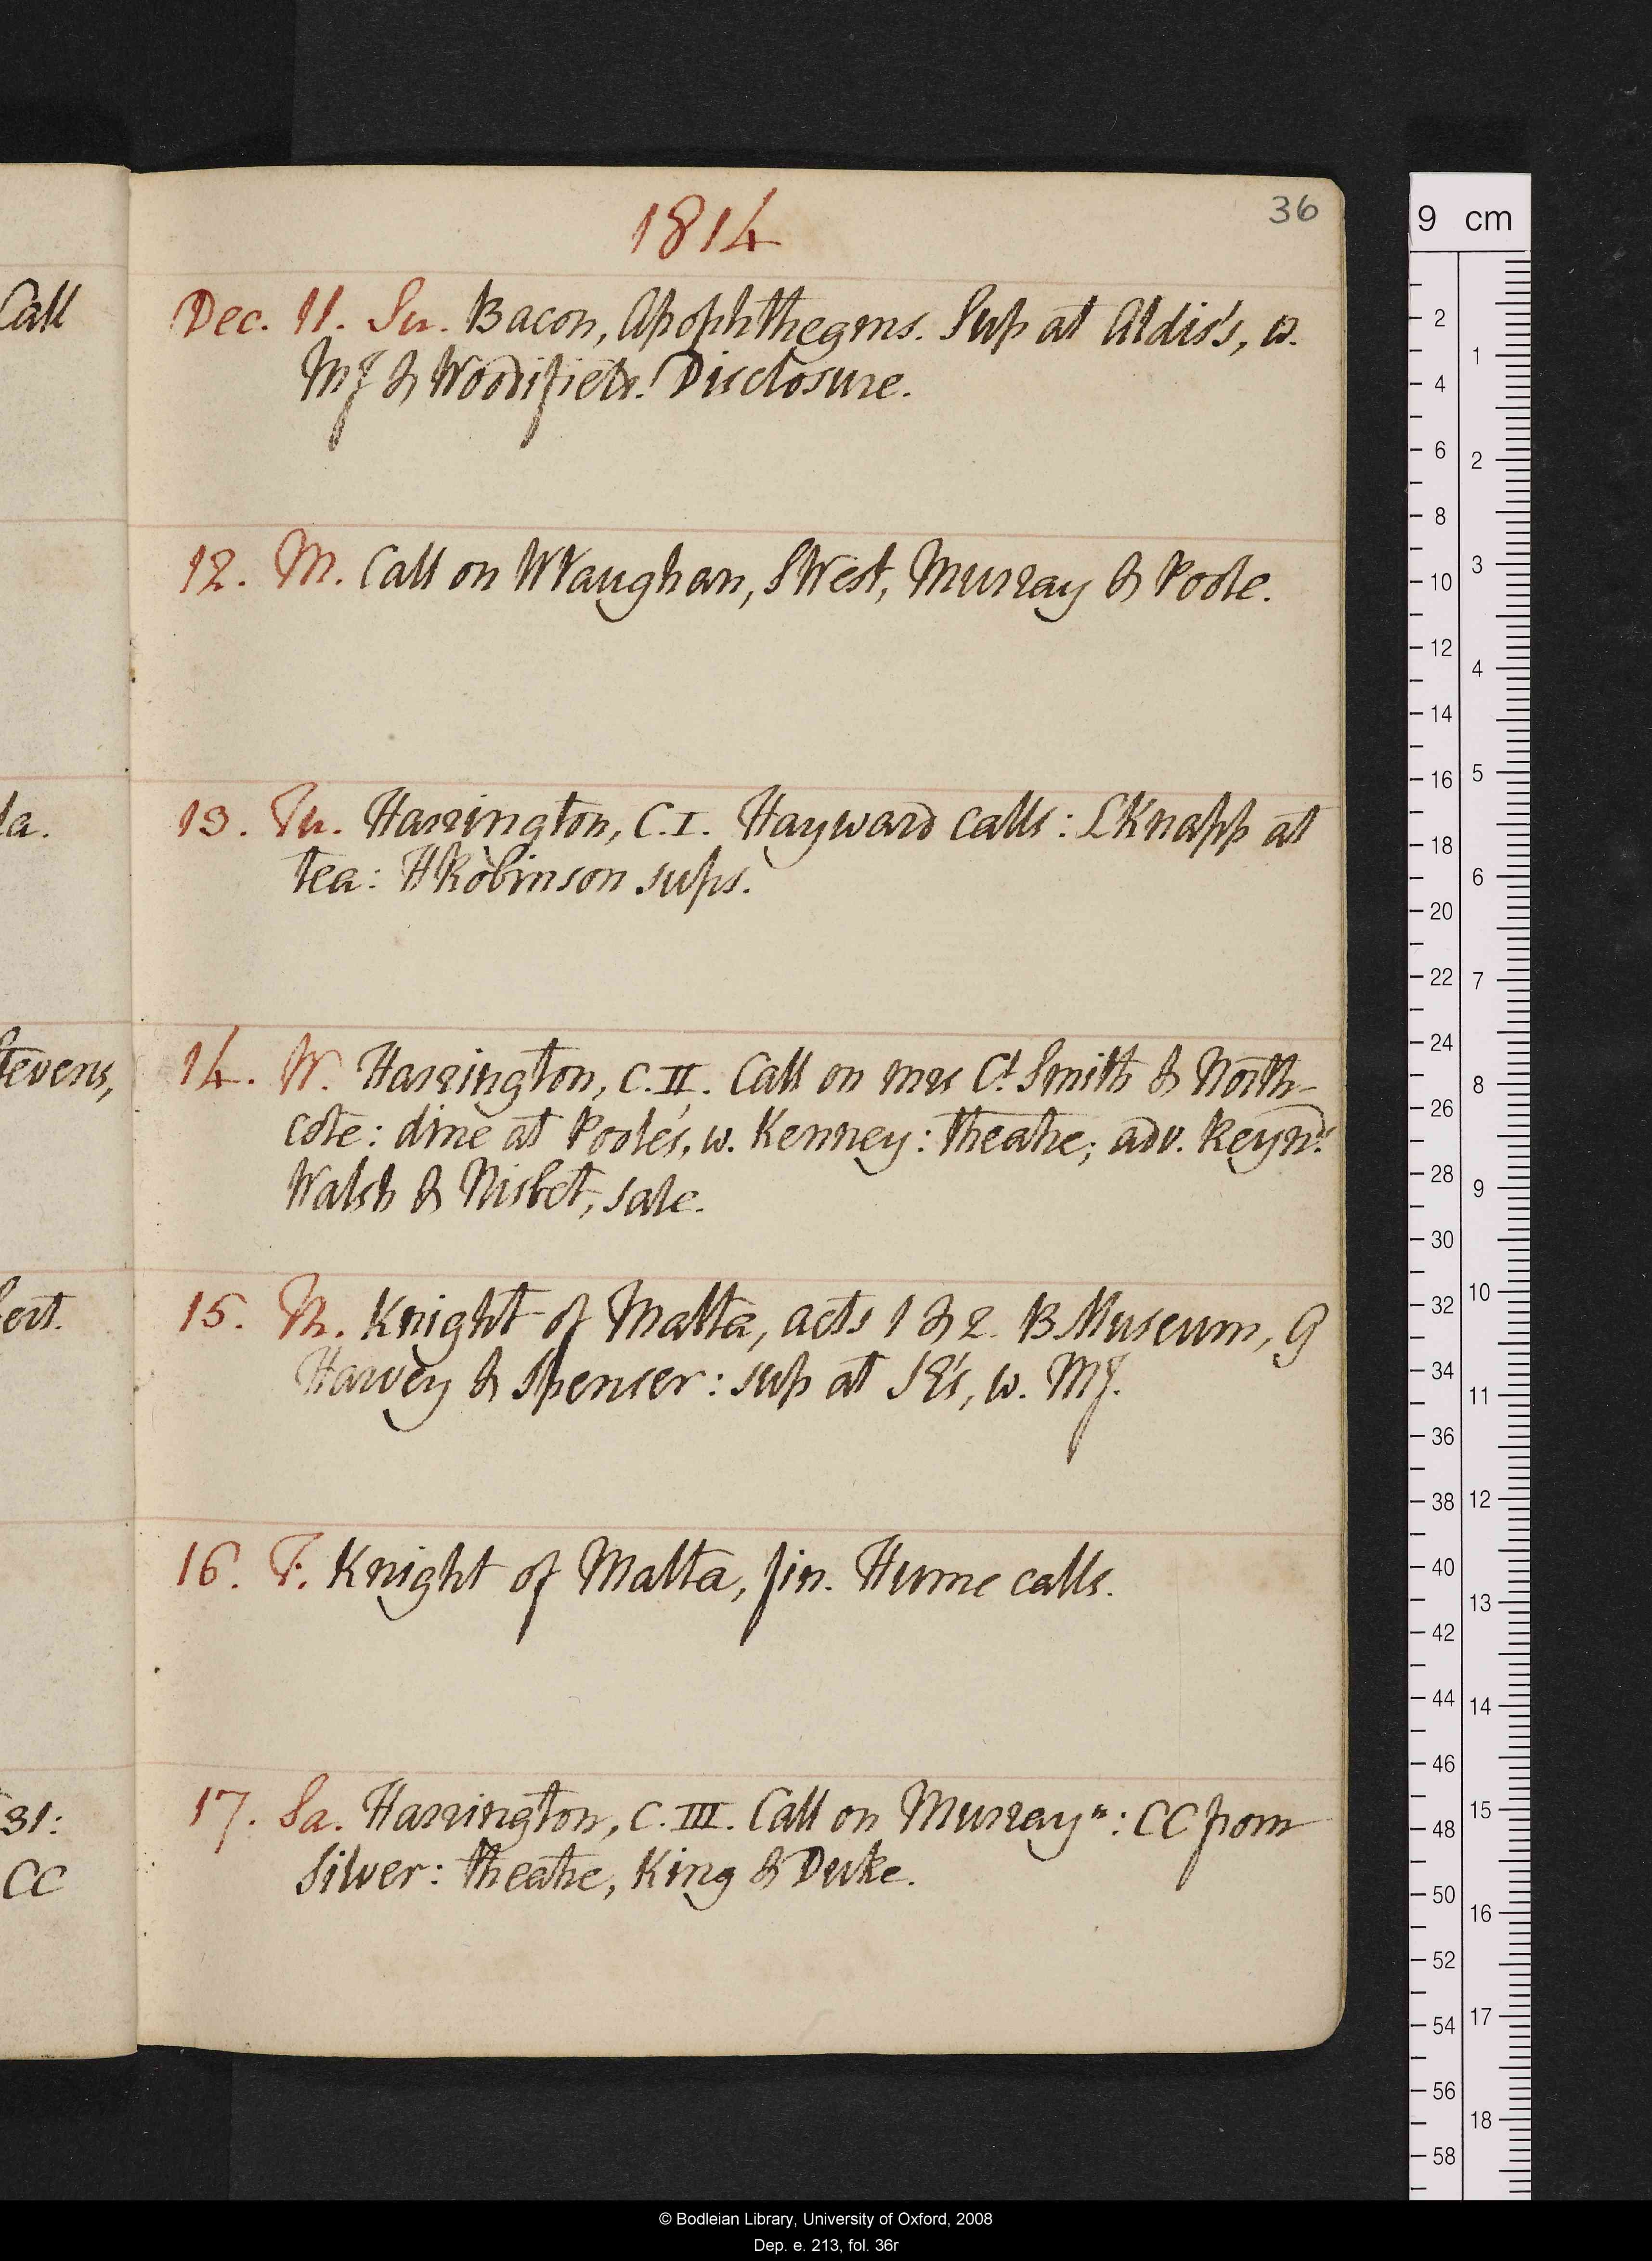 1814
36
Call
Dec. 11. Su. Bacon, Apophthegms. Sup at Aldis's, w.
MJ & Woodifield. Disclosure.
12. M. Call on WVaughan, SWest, Murray & Poole.
da.
13. Tu. Harrington, C.I. Hayward calls: LKnapp at
tea: HRobinson sups.
tevens,
14. W. Harrington, C.II. Call on mrs Ct Smith & North-
cote: dine at Poole's, w. Kenney: theatre; adv. Reynds
Walsh & Nisbet, sale.
bert.
15. Th. Knight of Malta, acts 1 & 2. B Museum, G
Harvey & Spencer: sup at w. MJ.
16. F. Knight of Malta, fin. Hume calls.
31:
CC
17. Sa. Harrington, C.III. Call on Murray n: CC from
Silver: theatre, King & Duke.
9 cm
2
4
6
8
10
12
14
16
18
20
22
24
26
28
30
32
34
36
38
40
42
44
46
48
50
52
54
56
58
1
2
3
4
5
6
7
8
9
10
11
12
13
14
15
16
17
18
© Bodleian Library, University of Oxford, 2008
Dep. e. 213, fol. 36r